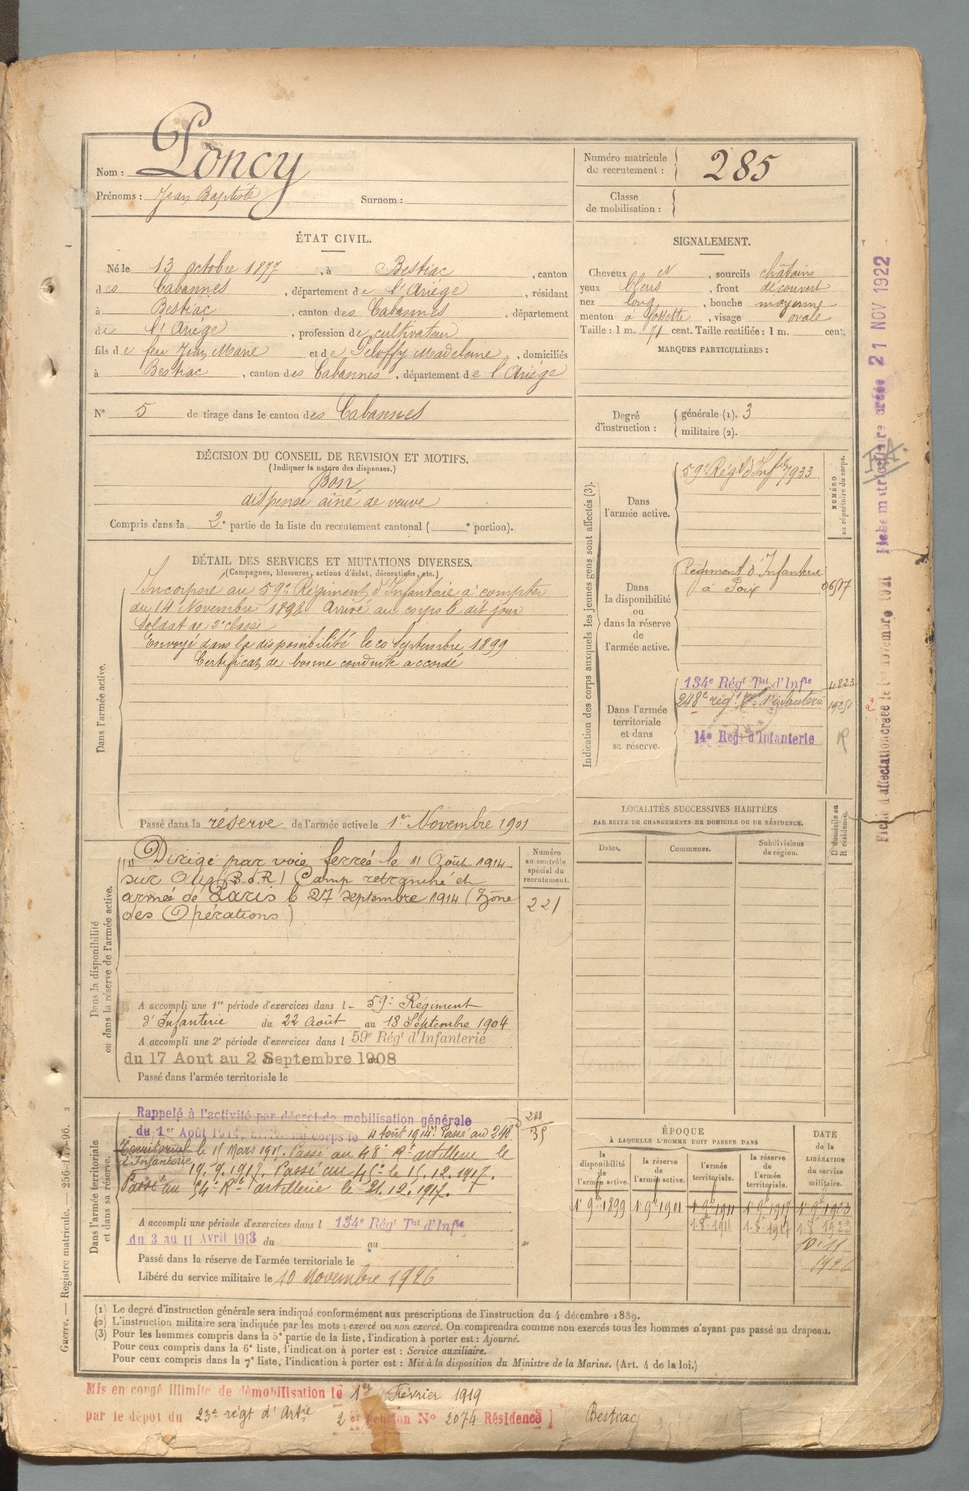 Nom : Poncy
Prénoms : Jean Baptiste Surnom :
Numéro matricule du recrutement : 285
Classe de mobilisation :
ÉTAT CIVIL.
Né le 13 octobre 1877, à Bestiac, canton
des Cabannes, département de l'Ariège, résidant
à Bestiac, canton des Cabannes, département
de l'Ariège, profession de cultivateur
fils de feu Jean Marie et de Géloffy Madeleine, domiciliés
à Bestiac, canton des Cabannes, département de l'Ariège
N° 5 de tirage dans le canton des Cabannes
SIGNALEMENT.
Cheveux N, sourcils châtains
yeux bleus, front découvert
nez long, bouche moyenne
menton à fossette, visage ovale
Taille : 1 m. 71 cent. Taille rectifiée : 1 m. cent.
MARQUES PARTICULIÈRES :
Degré d'instruction : générale (1). 3
militaire (2).
DÉCISION DU CONSEIL DE REVISION ET MOTIFS.
(Indiquer la nature des dispenses.)
Bon
dispensé aîné de veuve
Compris dans la 2e partie de la liste du recrutement cantonal ( e portion).
DÉTAIL DES SERVICES ET MUTATIONS DIVERSES.
(Campagnes, blessures, actions d'éclat, décorations, etc.)
Dans l'armée active.
Incorporé au 59e Régiment d'Infanterie à compter
du 14 Novembre 1898 Arrivé au corps le dit jour
Soldat de 2e classe
Envoyé dans la disponibilité le 20 Septembre 1899
Certificat de bonne conduite accordé
Passé dans la réserve de l'armée active le 1er Novembre 1901
Indication des corps auxquels les jeunes gens sont affectés (3).
NUMÉRO au répertoire du corps.
Dans l'armée active.
59e Régt d'Infie 7933
Dans la disponibilité ou dans la réserve de l'armée active.
Régiment d'Infanterie
à Foix 0697
Dans l'armée territoriale et dans sa réserve.
134e Régt Tal d'Infie
248e rég. d'infanterie
14e Régt d'Infanterie
LOCALITÉS SUCCESSIVES HABITÉES
PAR SUITE DE CHANGEMENTS DE DOMICILE OU DE RÉSIDENCE.
D. domicile ou R. résidence.
Dates. Communes. Subdivisions de région.
Dans la disponibilité ou dans la réserve de l'armée active.
Numéro au contrôle spécial du recrutement.
221
Dirigé par voie ferrée le 11 Août 1914
sur (B.d.R) Camp retranché et
armée de Paris le 27 septembre 1914 (Zône
des Opérations)
A accompli une 1re période d'exercices dans l 59e Régiment
d'Infanterie du 22 Août au 18 Septembre 1904
A accompli une 2e période d'exercices dans l 59e Régt d'Infanterie
du 17 Aout au 2 Septembre 1908
Passé dans l'armée territoriale le
Dans l'armée territoriale et dans sa réserve.
Rappelé à l'activité par décret de mobilisation générale
du 1er Août 1914, arrivé au corps le 4 août 1914. Passé au 248e
Territorial d'Infanterie le 15 Mars 1915. Passé au 48e Rt artillerie le
19.9.1917. Passé au 45e le 15.12.1917.
Passé au 54e Rt artillerie le 21.12.1917.
A accompli une période d'exercices dans l 134e Régt Tal d'Infie
du 3 au 11 Avril 1913 du au
Passé dans la réserve de l'armée territoriale le
Libéré du service militaire le 10 novembre 1926
ÉPOQUE
À LAQUELLE L'HOMME DOIT PASSER DANS
la disponibilité de l'armée active. la réserve de l'armée active. l'armée territoriale. la réserve de l'armée territoriale.
DATE de la LIBÉRATION du service militaire.
1er 9bre 1899 1er 9bre 1901 1er 9bre 1911 1er 9bre 1917 1er 9bre 1923
1.8bre 1911 1.8bre 1917 1.8bre 1923
10.11
1926
(1) Le degré d'instruction générale sera indiqué conformément aux prescriptions de l'instruction du 4 décembre 1889.
(2) L'instruction militaire sera indiquée par les mots : exercé ou non exercé. On comprendra comme non exercés tous les hommes n'ayant pas passé au drapeau.
(3) Pour les hommes compris dans la 5e partie de la liste, l'indication à porter est : Ajourné.
Pour ceux compris dans la 6e liste, l'indication à porter est : Service auxiliaire.
Pour ceux compris dans la 7e liste, l'indication à porter est : Mis à la disposition du Ministre de la Marine. (Art. 4 de la loi.)
Mis en congé illimité de démobilisation le 1er Février 1919
par le dépôt du 23e régt d'Artie 2e échelon N° 2074 Résidence Bestiac
Guerre. — Registre matricule. — 256-177-96.
Fiche matriculaire créée 21 NOV 1922
Fiche d'affectation créée le novembre 1921